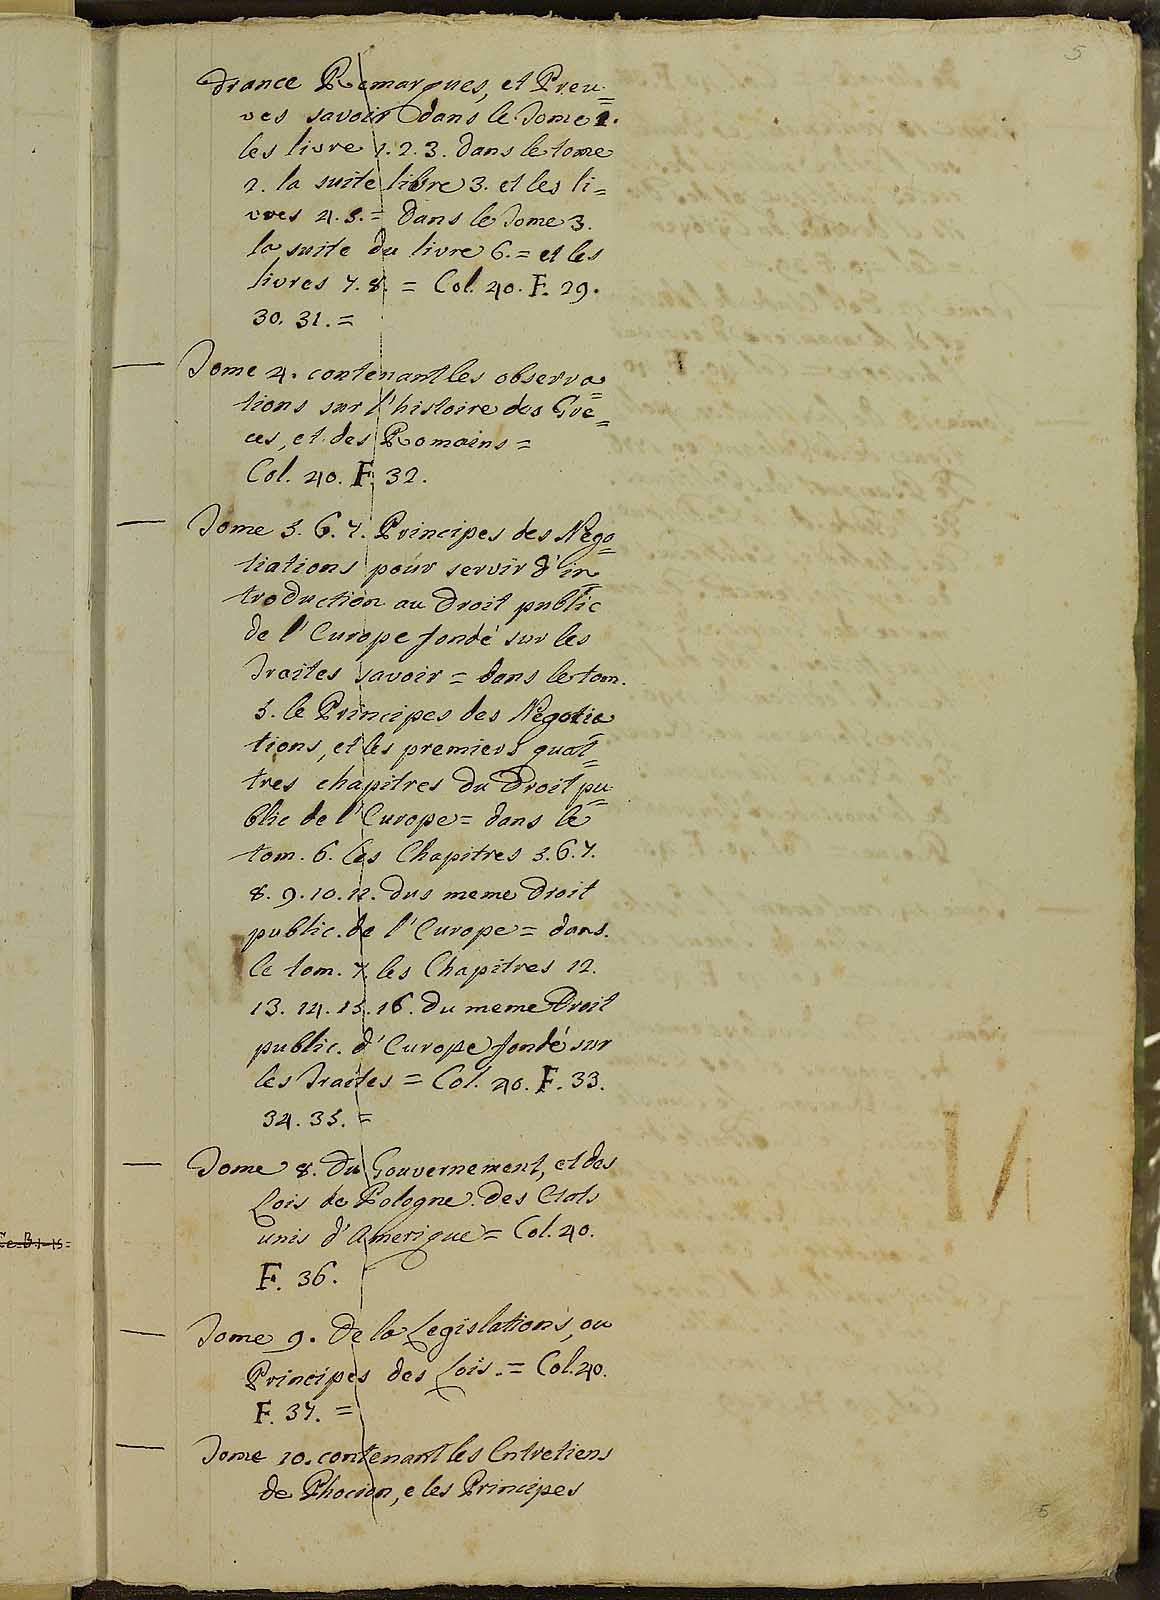 5
france Remarques, et Preu=
ves savoir dans le Tome 1.
les livre 1. 2. 3. dans le tome
2. la suite libre 3. et les li=
vres 4. 5. = dans le Tome 3.
la suite du livre 6. = et les
livres 7. 8. = Col. 40. F. 29.
30. 31. =
— Tome 4. contenant les observa=
tions sur l'histoire des Gre=
ces, et des Romains =
Col. 40. F. 32.
— Tome 5. 6. 7. Principes des Nego=
tiations pour servir d'in=
troduction au Droit public
de l'Europe fondé sur les
Traites savoir = dans le tom.
5. le Principes des Negotia=
tions, et les premiers quat=
tres chapitres du Droit pu=
blic de l'Europe = dans le
tom. 6. les Chapitres 5. 6. 7.
8. 9. 10. 11. dus meme Droit
public. de l'Europe = dans.
le tom. 7. les Chapitres 12.
13. 14. 15. 16. du meme Droit
public. d'Europe fondé sur
les Traites = Col. 40. F. 33.
34. 35. =
— Tome 8. du Gouvernement, et des
Lois de Pologne. des Etats
unis d'Amerique = Col. 40.
F. 36.
— Tome 9. De la Legislations, ou
Principes des Lois. = Col. 40.
F. 37. =
— Tome 10. contenant les Entretiens
de Phocion, e les Principes
5